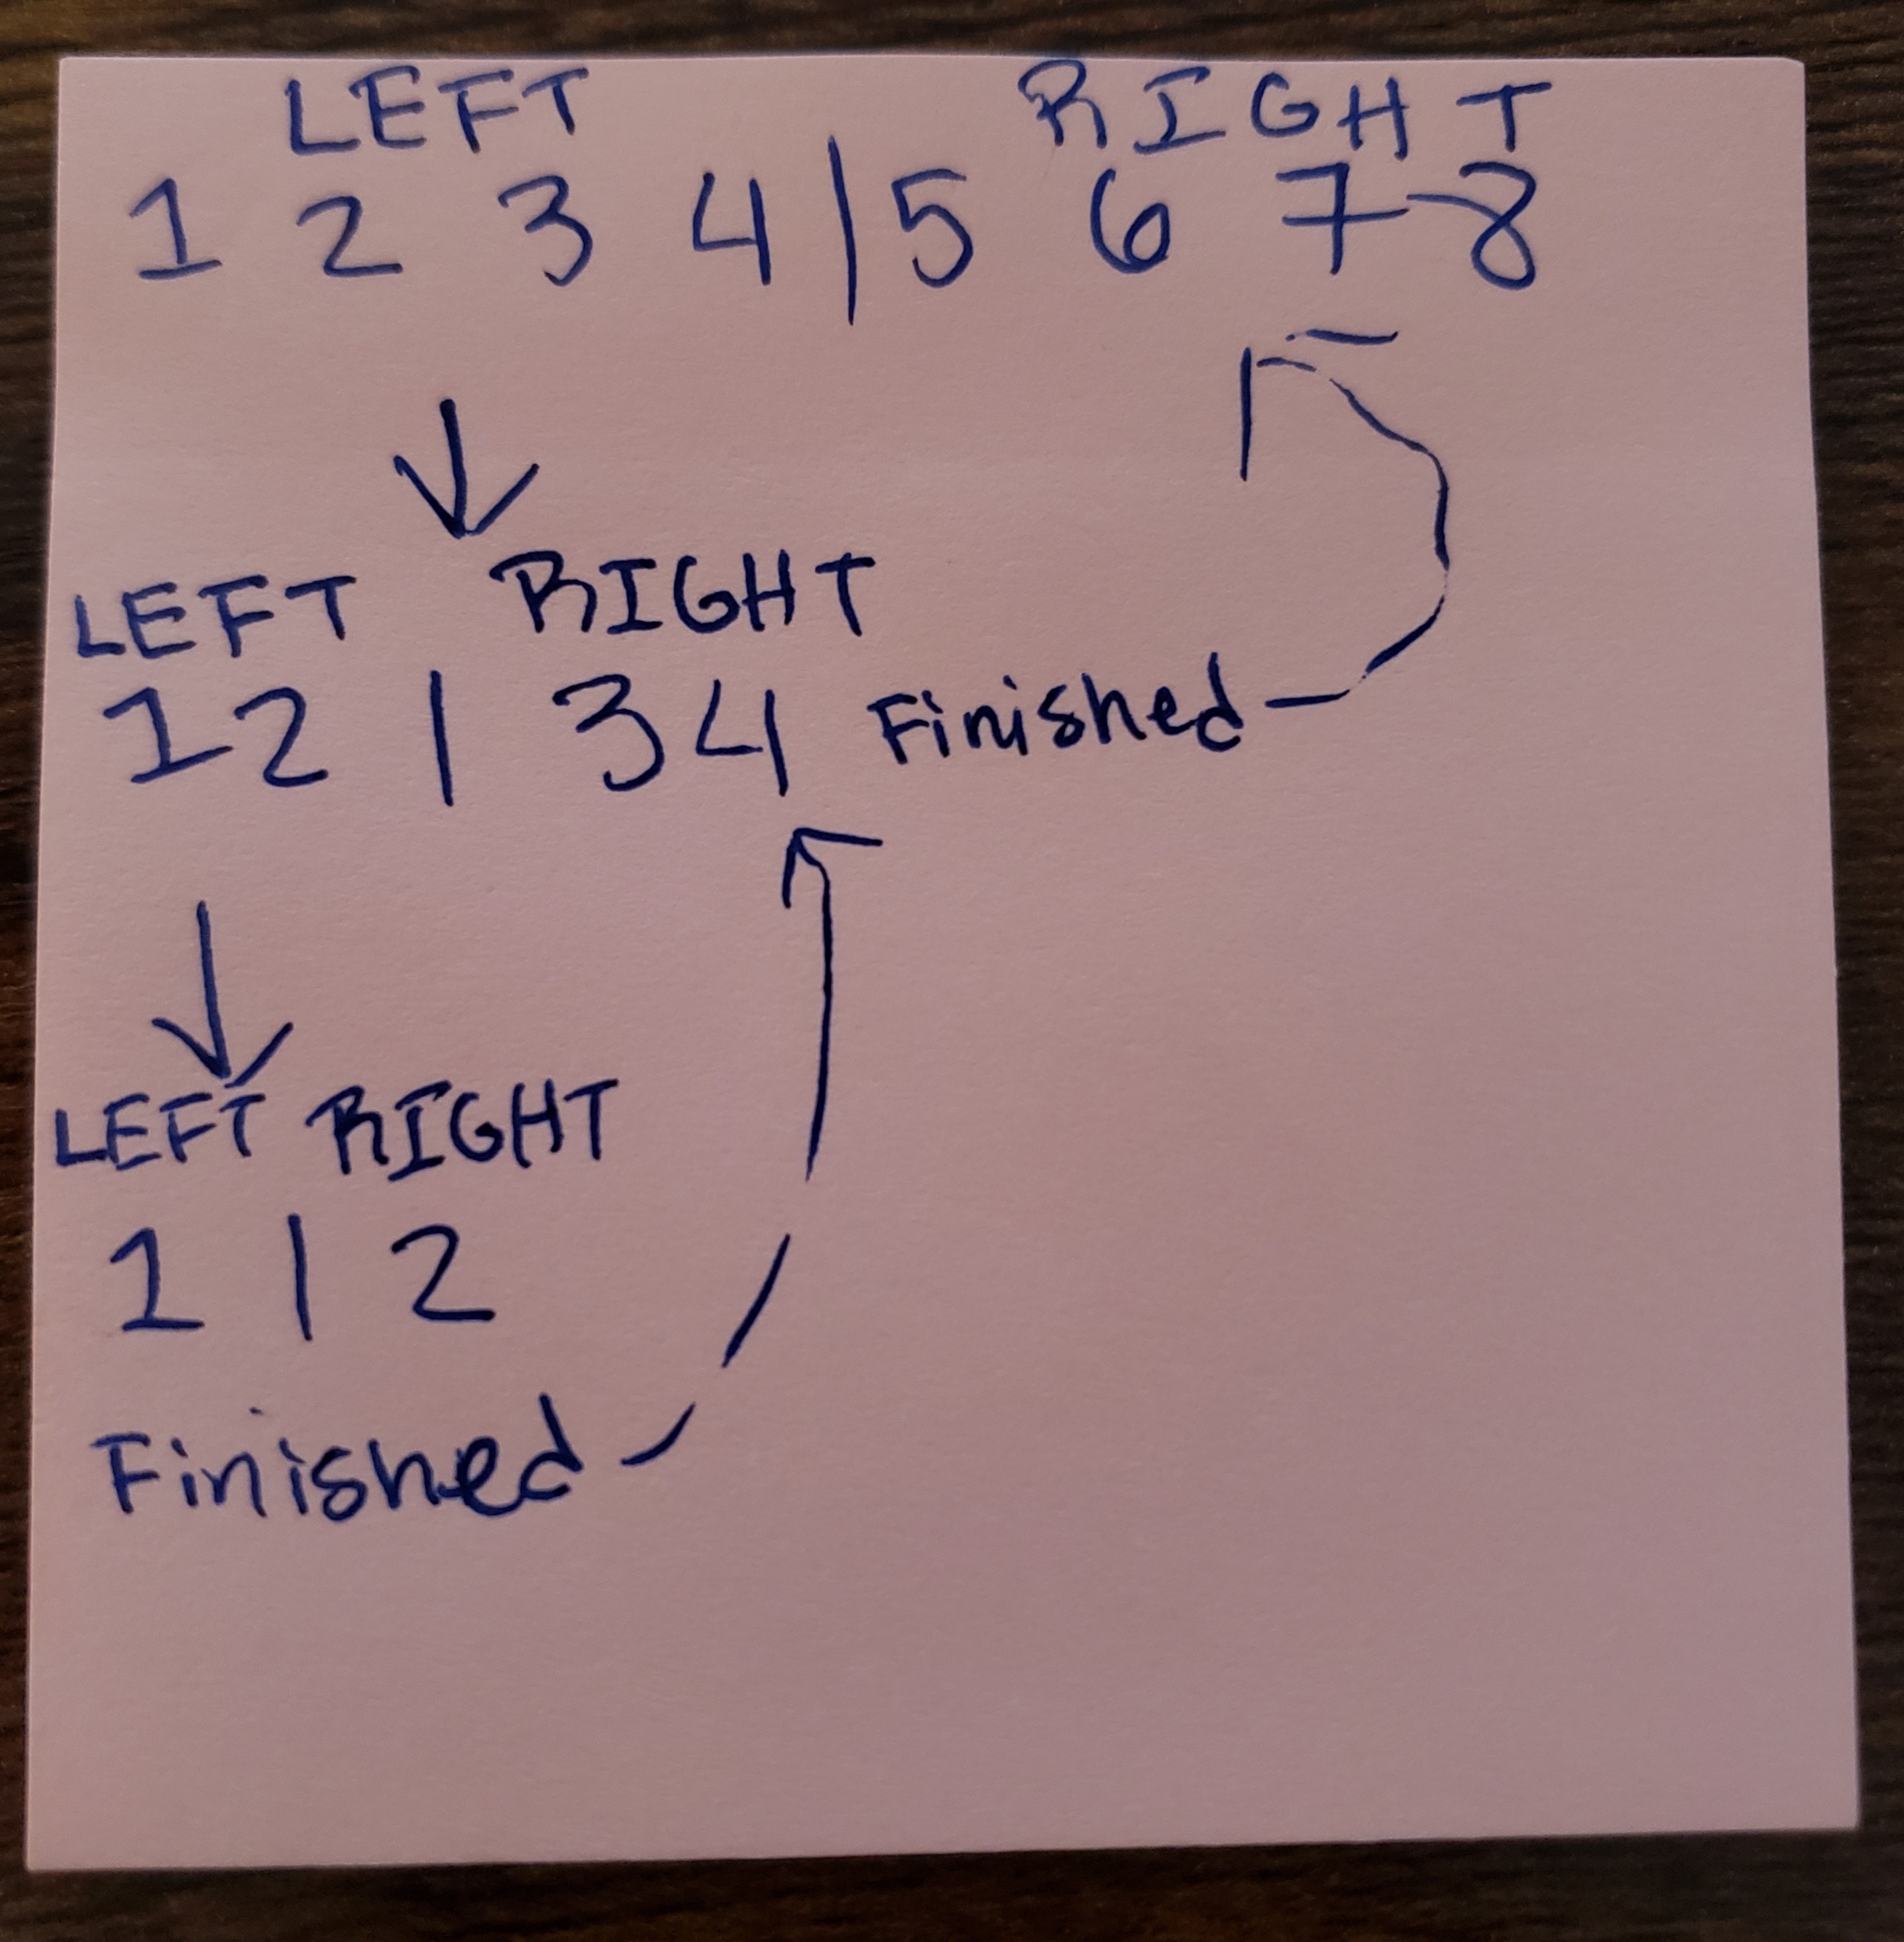 LEFT RIGHT
1 2 3 4 | 5 6 7 8
LEFT RIGHT
1 2 | 3 4 Finished
LEFT RIGHT
1 | 2
Finished